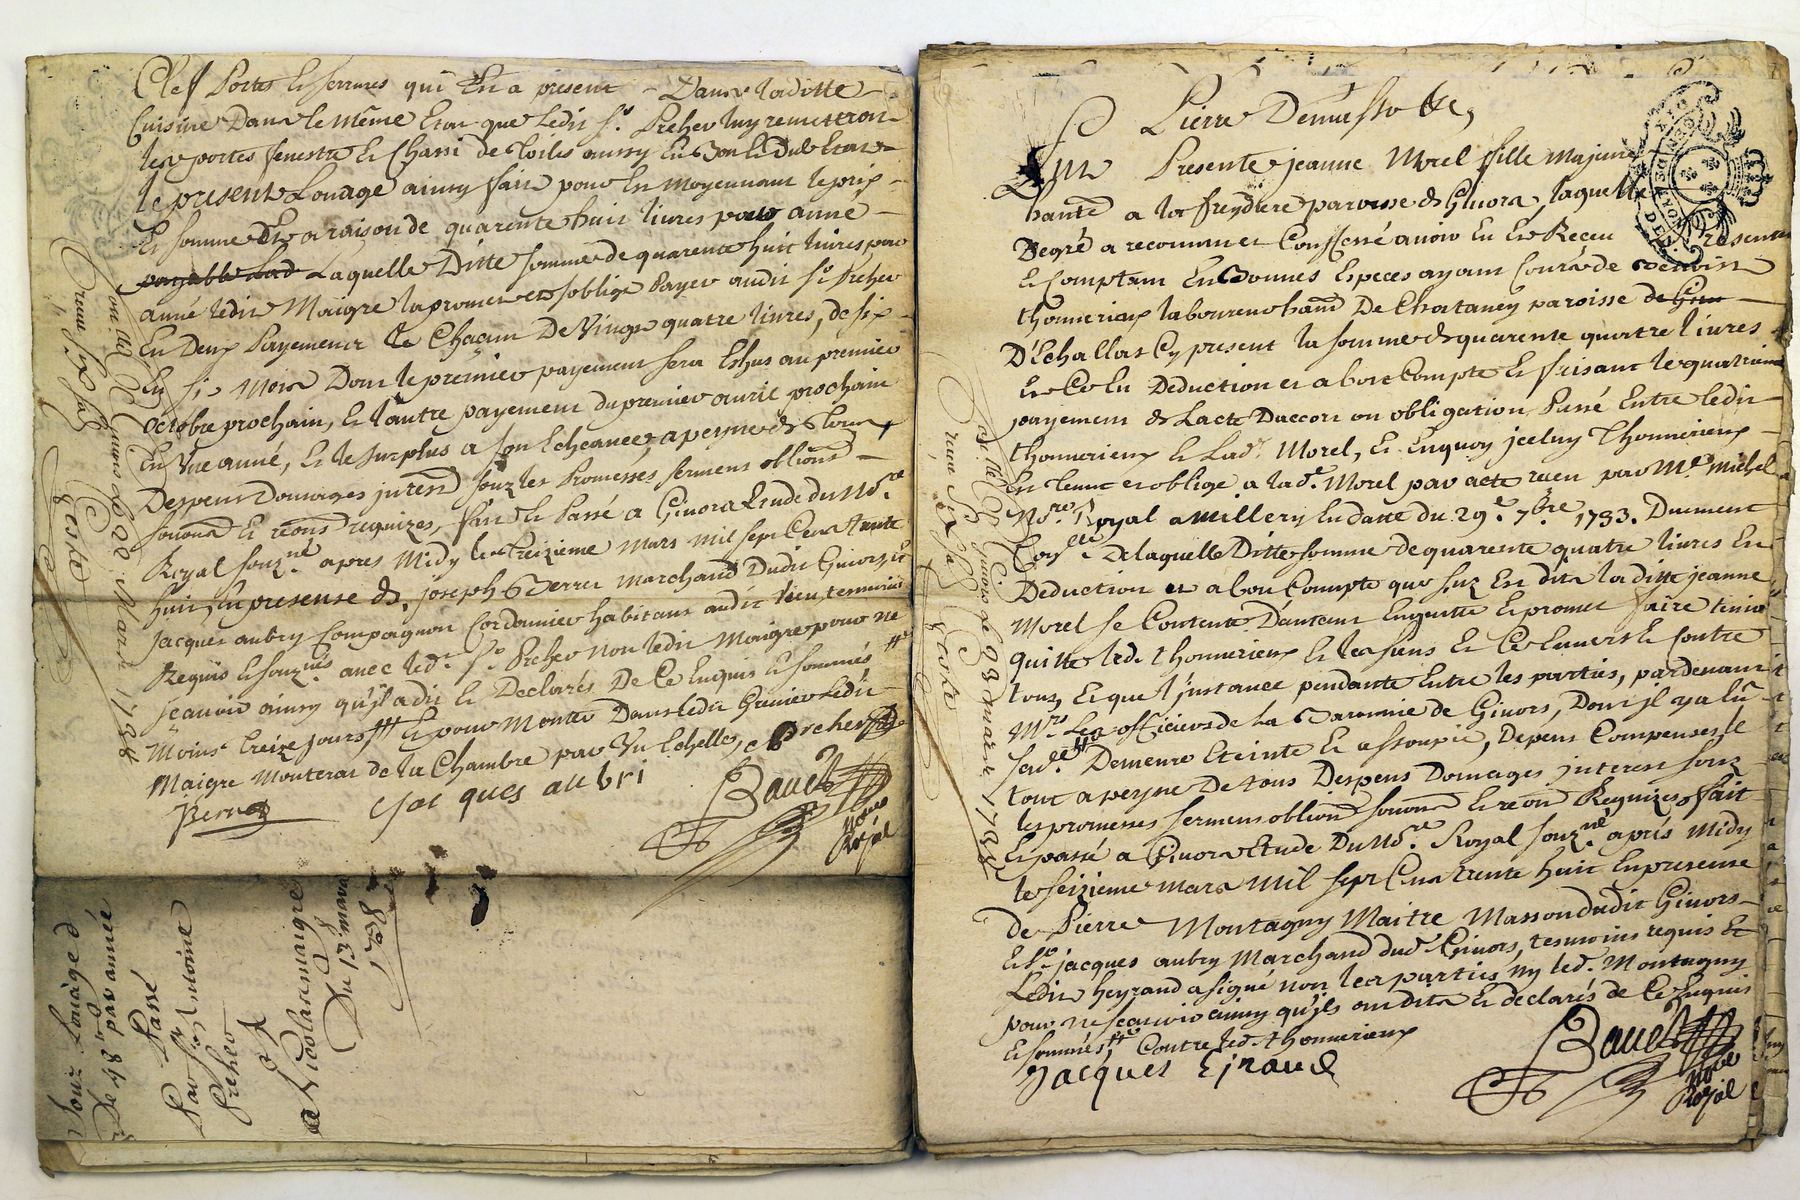 Clef Portes & serrures qui En a present - Dans laditte
Cuisine Dans le même Etat que Ledit Sr. Preher luy remettron
les portes fenestre & Chassi de toiles aussy En bon & Dub Etat
le present Louage ainsy fait pour & moyennant le prix
Et somme a raison de quarente huit livres pour anné
payable Lad Laquelle Ditte somme de quarente huit livres, par
anné ledit Maigre la promet et s'oblige Payer audit Sr. Preher
En Deux Payements & Chaçun De Vingt quatre livres, de six
En six Mois Dont le premier payement sera Eshus au premier
octobre prochain, Et l'autre payement du premier avril prochain
En Une anné, Et le surplus a son Echeance, a peyne de tous
Despens Domages jnterest souz les Promesses sermens obliõns
soumõns & reõns requizes, fait & Passé a Givors Etude du Nore.
Royal souzné. apres Midy le treizieme Mars Mil sept Cent trente
huit, En presense de, joseph Verrer Marchand Dudit Givors, &
jacques aubry Compagnon Cordonnier habitans audit lieu, temoins
Requis & souznés avec led. Sr. Preher non ledit Maigre pour ne
sçavoir ainsy qu'jl a dit & Declaré De Ce Enquis & sommés
Moins treize jours & pour Monter Dans ledit Grenier Ledit
Maigre Monterat de la Chambre par Un Echelle, Preher
jac ques au bri
Bauet
Nore
Royal
Con. lle a Givors le 20 Mars 1738
receu six sols
Souz Louage d
De 48 tt par année
Passé
Par Sr. Antoine
Preher
A
a Nicolas maigre
Du 13 mars
1738
Pierre Demasso &c,
GEN. DE LYON
Fut Presente jeanne Morel fille Majeure
habte. a la freydiere paroisse de Givors, laquelle
Degré a reconnu et Conffessé avoir Eu & Receu presentement
& Comptant En Bonnes Especes ayant Cours de
thonnerieux laboureur habt. De Chartaney paroisse de Giv
D'Echallas Cy present la somme de quarente quatre livres
Et Ce En Deduction et a bon Compte & faisant le quatrieme
payement de Lacte Daccort ou obligation Passé Entre ledit
thonnerieux & Lad. Morel, Et Enquoy jceluy Thonnerieux
En tenu et obligé a lad. Morel par acte receu par Me. Michel
Nore. Royal a Millery En datte du 29e. 7bre 1733. Duement
Conllé. De laquelle Ditte somme de quarente quatre livres En
Deduction et a bon Compte que suz Est dit la ditte jeanne
Morel se Contente D'autant Enquitte & promet faire tenir
quitte led. thonnerieux & les siens Et Ce Envers & Contre
tous, Et que l'jnstance pendante Entre les parties, pardevant
Mrs. Les officiers de la Baronnie de Givors, Dont jl y a Eu
Demeure Eteinte & assoupie, Depens Compensés, le
tout a peyne De tous Despens Domages jnterest souz
les promesses sermens obliõns soumõns & reõns Requizes, fait
& passé a Givors Etude Du Nore. Royal souzné aprés Midy
le seizieme Mars Mil sept Cent trente huit En presense
de Pierre Montagny Maitre Masson dudit Givors
& Sr. jacques aubry Marchand dud. Givors, tesmoins requis Et
Ledit heyraud a signé non les parties ny led. Montagny
pour ne sçavoir ainsy qu'jls ont dit & declarés de Ce Enquis
& sommés, Contre led. thonnerieux
Jacques Eiraud
Bauet
Nore
Royal
Con. lle a Givors le 23 mars 1738
receu